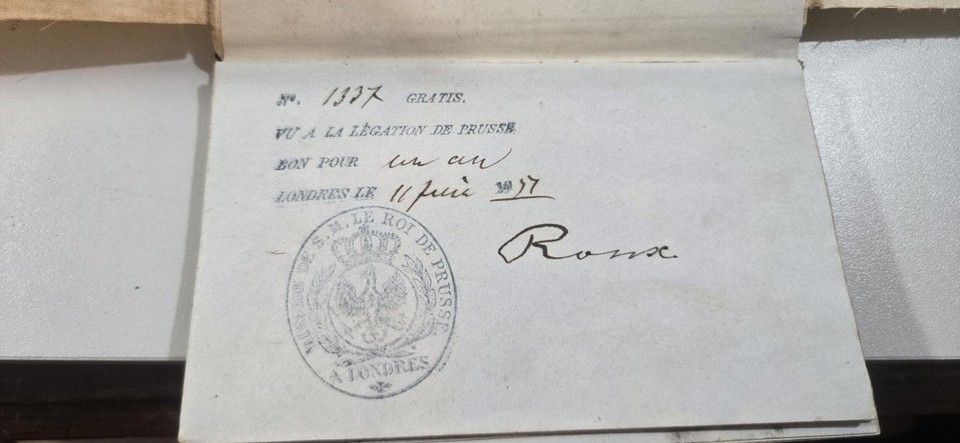 No. 1337 GRATIS.
VU A LA LÉGATION DE PRUSSE
BON POUR un an
LONDRES LE 11 juin 1857
Roux
MISSION DE S. M. LE ROI DE PRUSSE.
A LONDRES